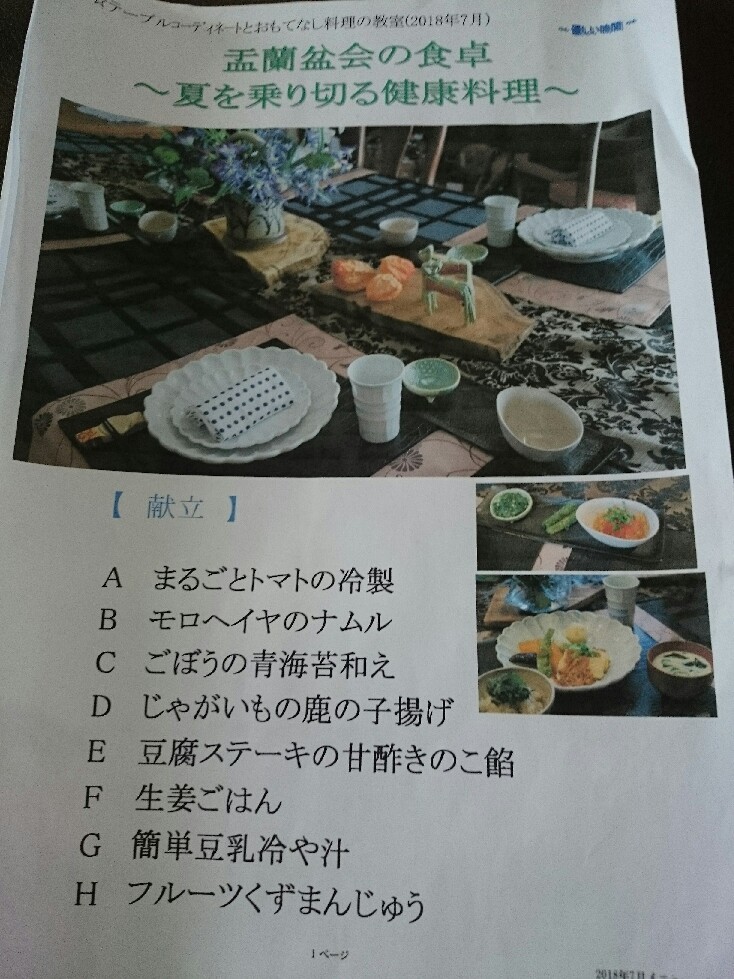 ☆テーブルコーディネートとおもてなし料理の教室(2018年7月)
盂蘭盆会の食卓
～夏を乗り切る健康料理～
【 献立 】
A まるごとトマトの冷製
B モロヘイヤのナムル
C ごぼうの青海苔和え
D じゃがいもの鹿の子揚げ
E 豆腐ステーキの甘酢きのこ餡
F 生姜ごはん
G 簡単豆乳冷や汁
H フルーツくずまんじゅう
1ページ
2018年7月